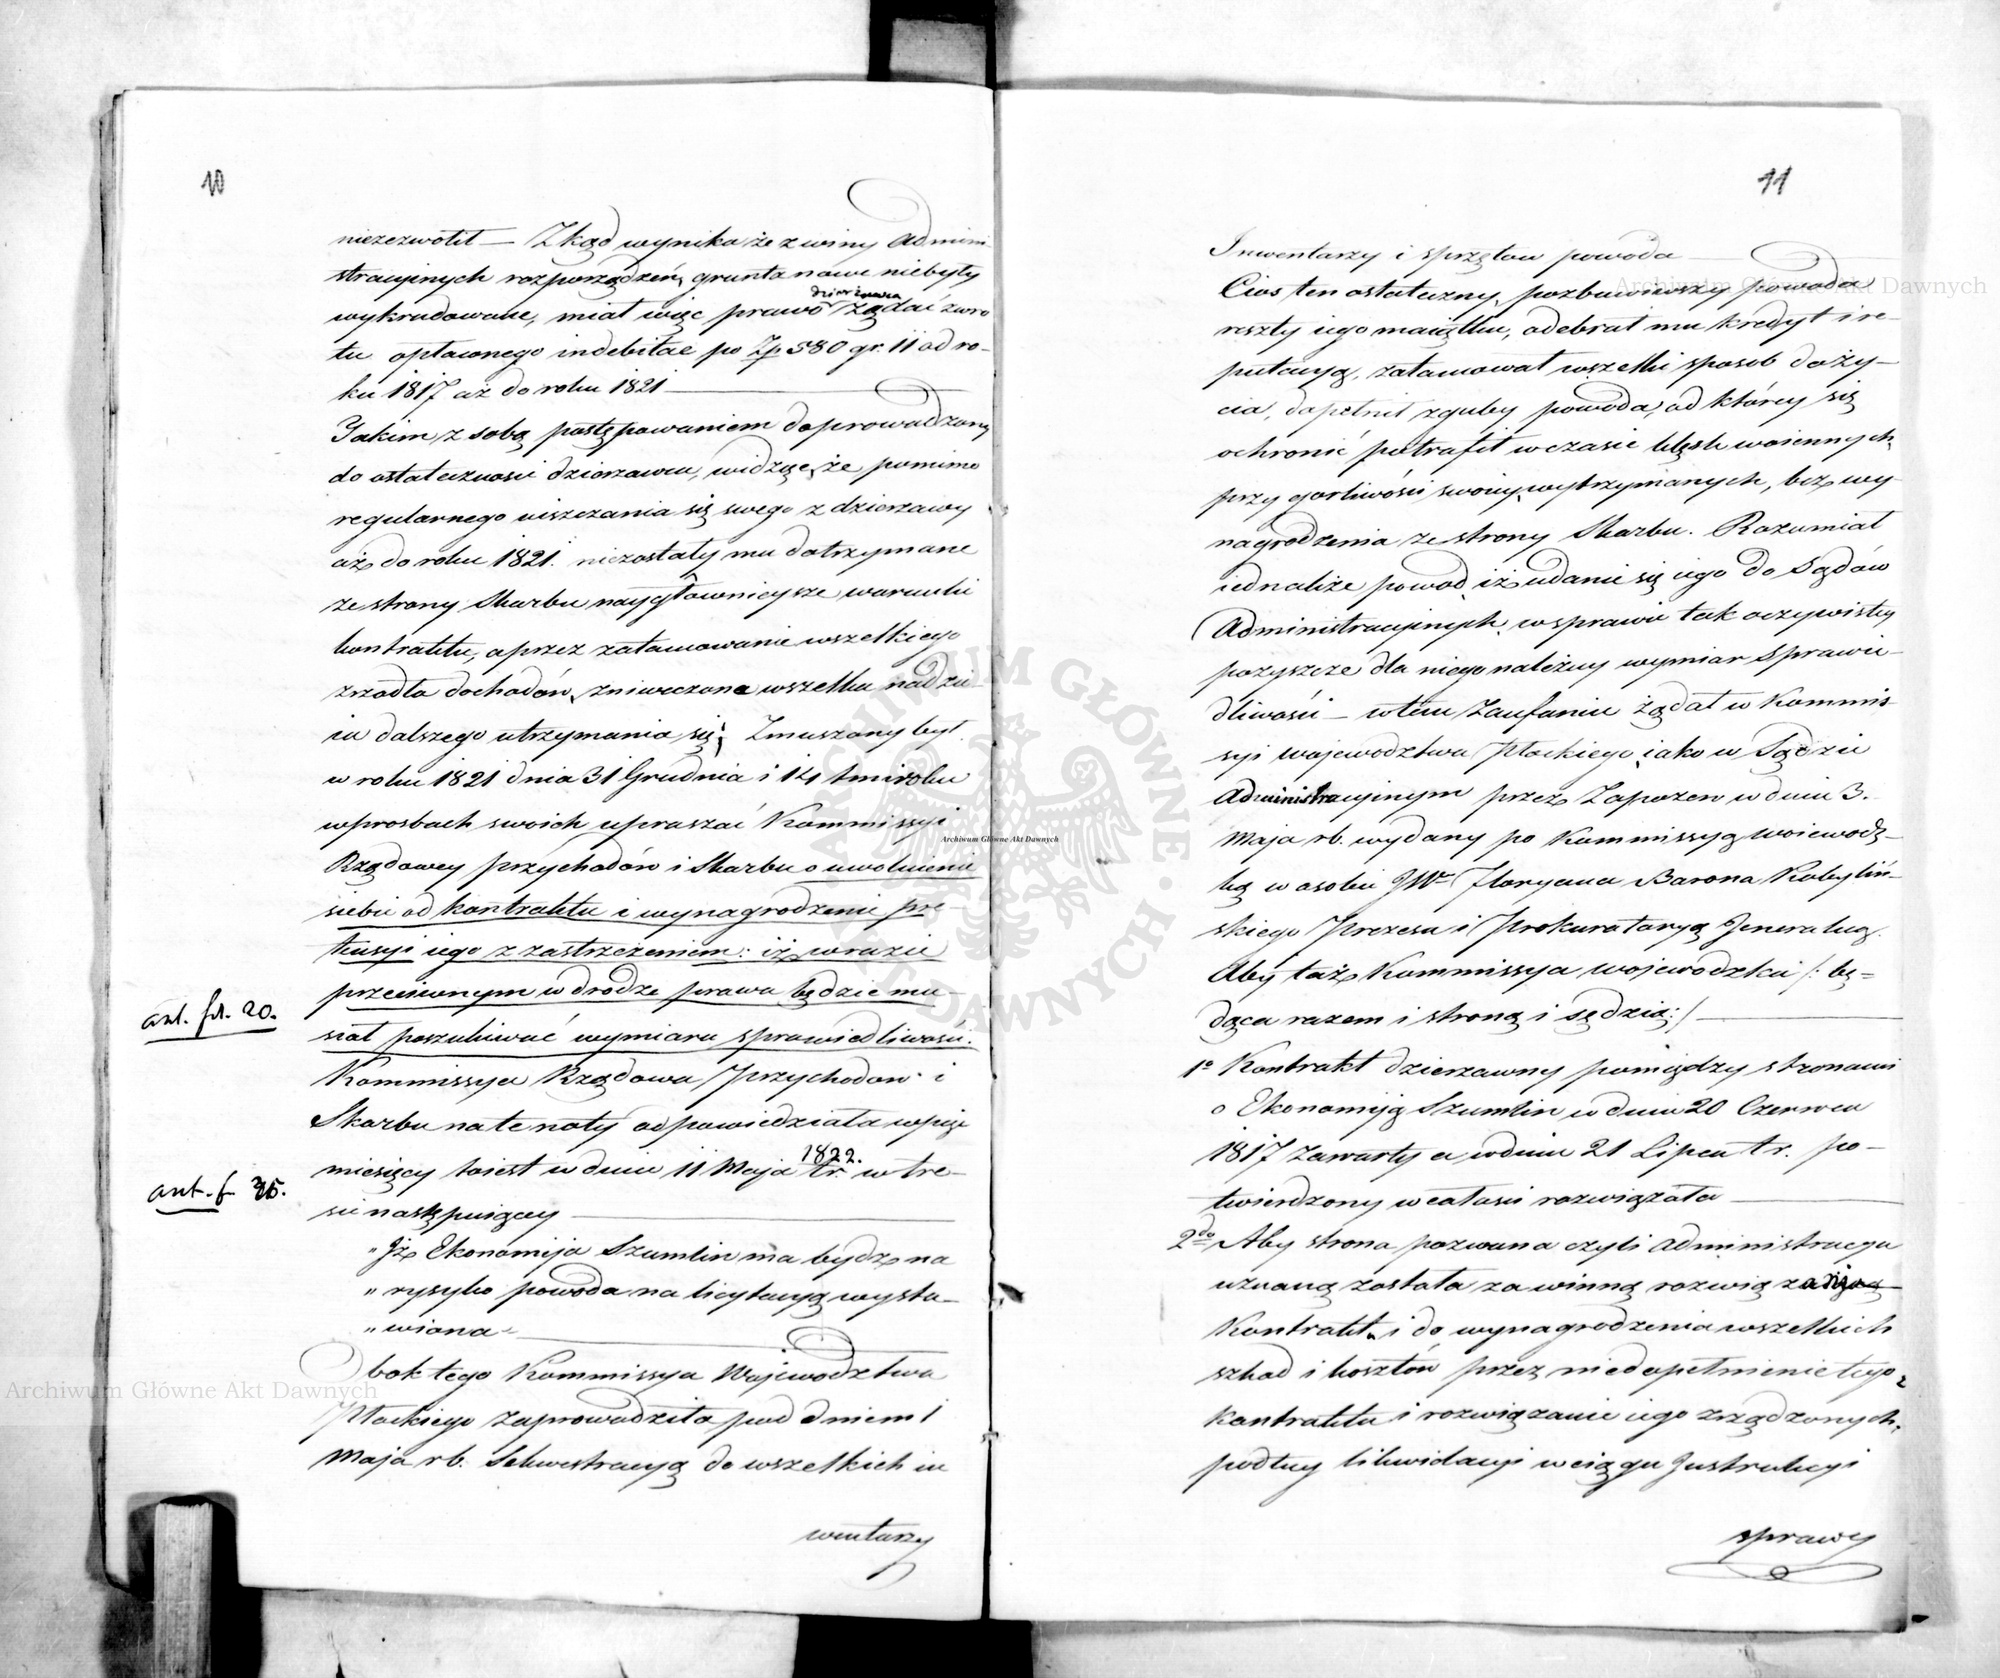 10
niezezwolił — Zkąd wynika że z winy admini-
stracyjnych rozporządzeń, grunta nowe niebyły
dzierżawca
wykrudowane, miał więc prawo żądać zwro
tu opłaconego indebitae po Zp 580 gr. 11 od ro-
ku 1817 aż do roku 1821
Jakim z sobą postępowaniem doprowadzony
do ostateczności dzierzawca, widząc, że pomimo
regularnego uiszczania się swego z dzierzawy
aż do roku 1821. niezostały mu dotrzymane
ze strony Skarbu naygłownieysze warunki
kontraktu, a przez zatamowanie wszelkiego
zrzodła dochodów, zniweczona wszelka nadzie-
ia dalszego utrzymania się; Zmuszony był
w roku 1821 dnia 31 Grudnia i 14 tmi roku
w prosbach swoich upraszać Kommissyi
Rządowey przychodów i Skarbu o uwolnienie
siebie od kontraktu i wynagrodzenie pre-
tensyi iego z zastrzeżeniem: iż w razie
przeciwnym w drodze prawa będzie mu-
ant. fol. 20.
siał poszukiwać wymiaru sprawiedliwości.
Kommissya Rządowa Przychodow i
Skarbu na te noty odpowiedziała w pięć
1822.
miesięcy to iest w dniu 11 Maja tr. w tre-
ant. f. 35.
sci następuiącey
„ Iż Ekonomija Szumlin ma bydź na
„ ryzyko powoda na licytacyą wysta-
„ wiona
Obok tego Kommissya Województwa
Płockiego zaprowadziła pod dniem 1
Maja rb. Sekwestracyą do wszelkich in
wentarzy
11
Inwentarzy i sprzętow powoda
Cios ten ostateczny, pozbawiwszy powoda
reszty iego maiątku, odebrał mu kredyt i re-
putacyą, zatamował wszelki sposob do ży-
cia, dopełnił zguby powoda, od którey się
ochronić potrafił w czasie klęsk woiennych,
przy gorliwości swoiey, wytrzymanych, bez wy-
nagrodzenia ze strony Skarbu. Rozumiał
iednakże powod, iż udanie się iego do Sądów
Administracyinych, w sprawie tak oczywistey
pozyszcze dla niego należny wymiar Sprawie-
dliwości — w tem Zaufaniu żądał w Kommis-
syi Wojewodztwa Płockiego, iako w Sądzie
Administracyinym przez Zapozew w dniu 3.
Maja rb. wydany po Kommissyą woiewodz-
ką w osobie JWo Floryana Barona Kobyliń-
skiego Prezesa i Prokuratoryą Jeneralną.
Aby taż Kommissya wojewodzka /: bę-
dąca razem i stroną i sędzią :/
1o Kontrakt dzierzawny pomiędzy stronami
o Ekonomiją Szumlin w dniu 20 Czerwca
1817 zawarty a w dniu 21 Lipca t. r. po-
twierdzony w całości rozwiązała
2do Aby strona pozwana czyli Administracya
uznaną została za winną rozwiąza
Kontrakt, i do wynagrodzenia wszelkich
szkod i kosztów przez niedopełnienie tego
kontraktu i rozwiązanie iego zrządzonych,
podług likwidacyi w ciągu Instrukcyi
sprawy